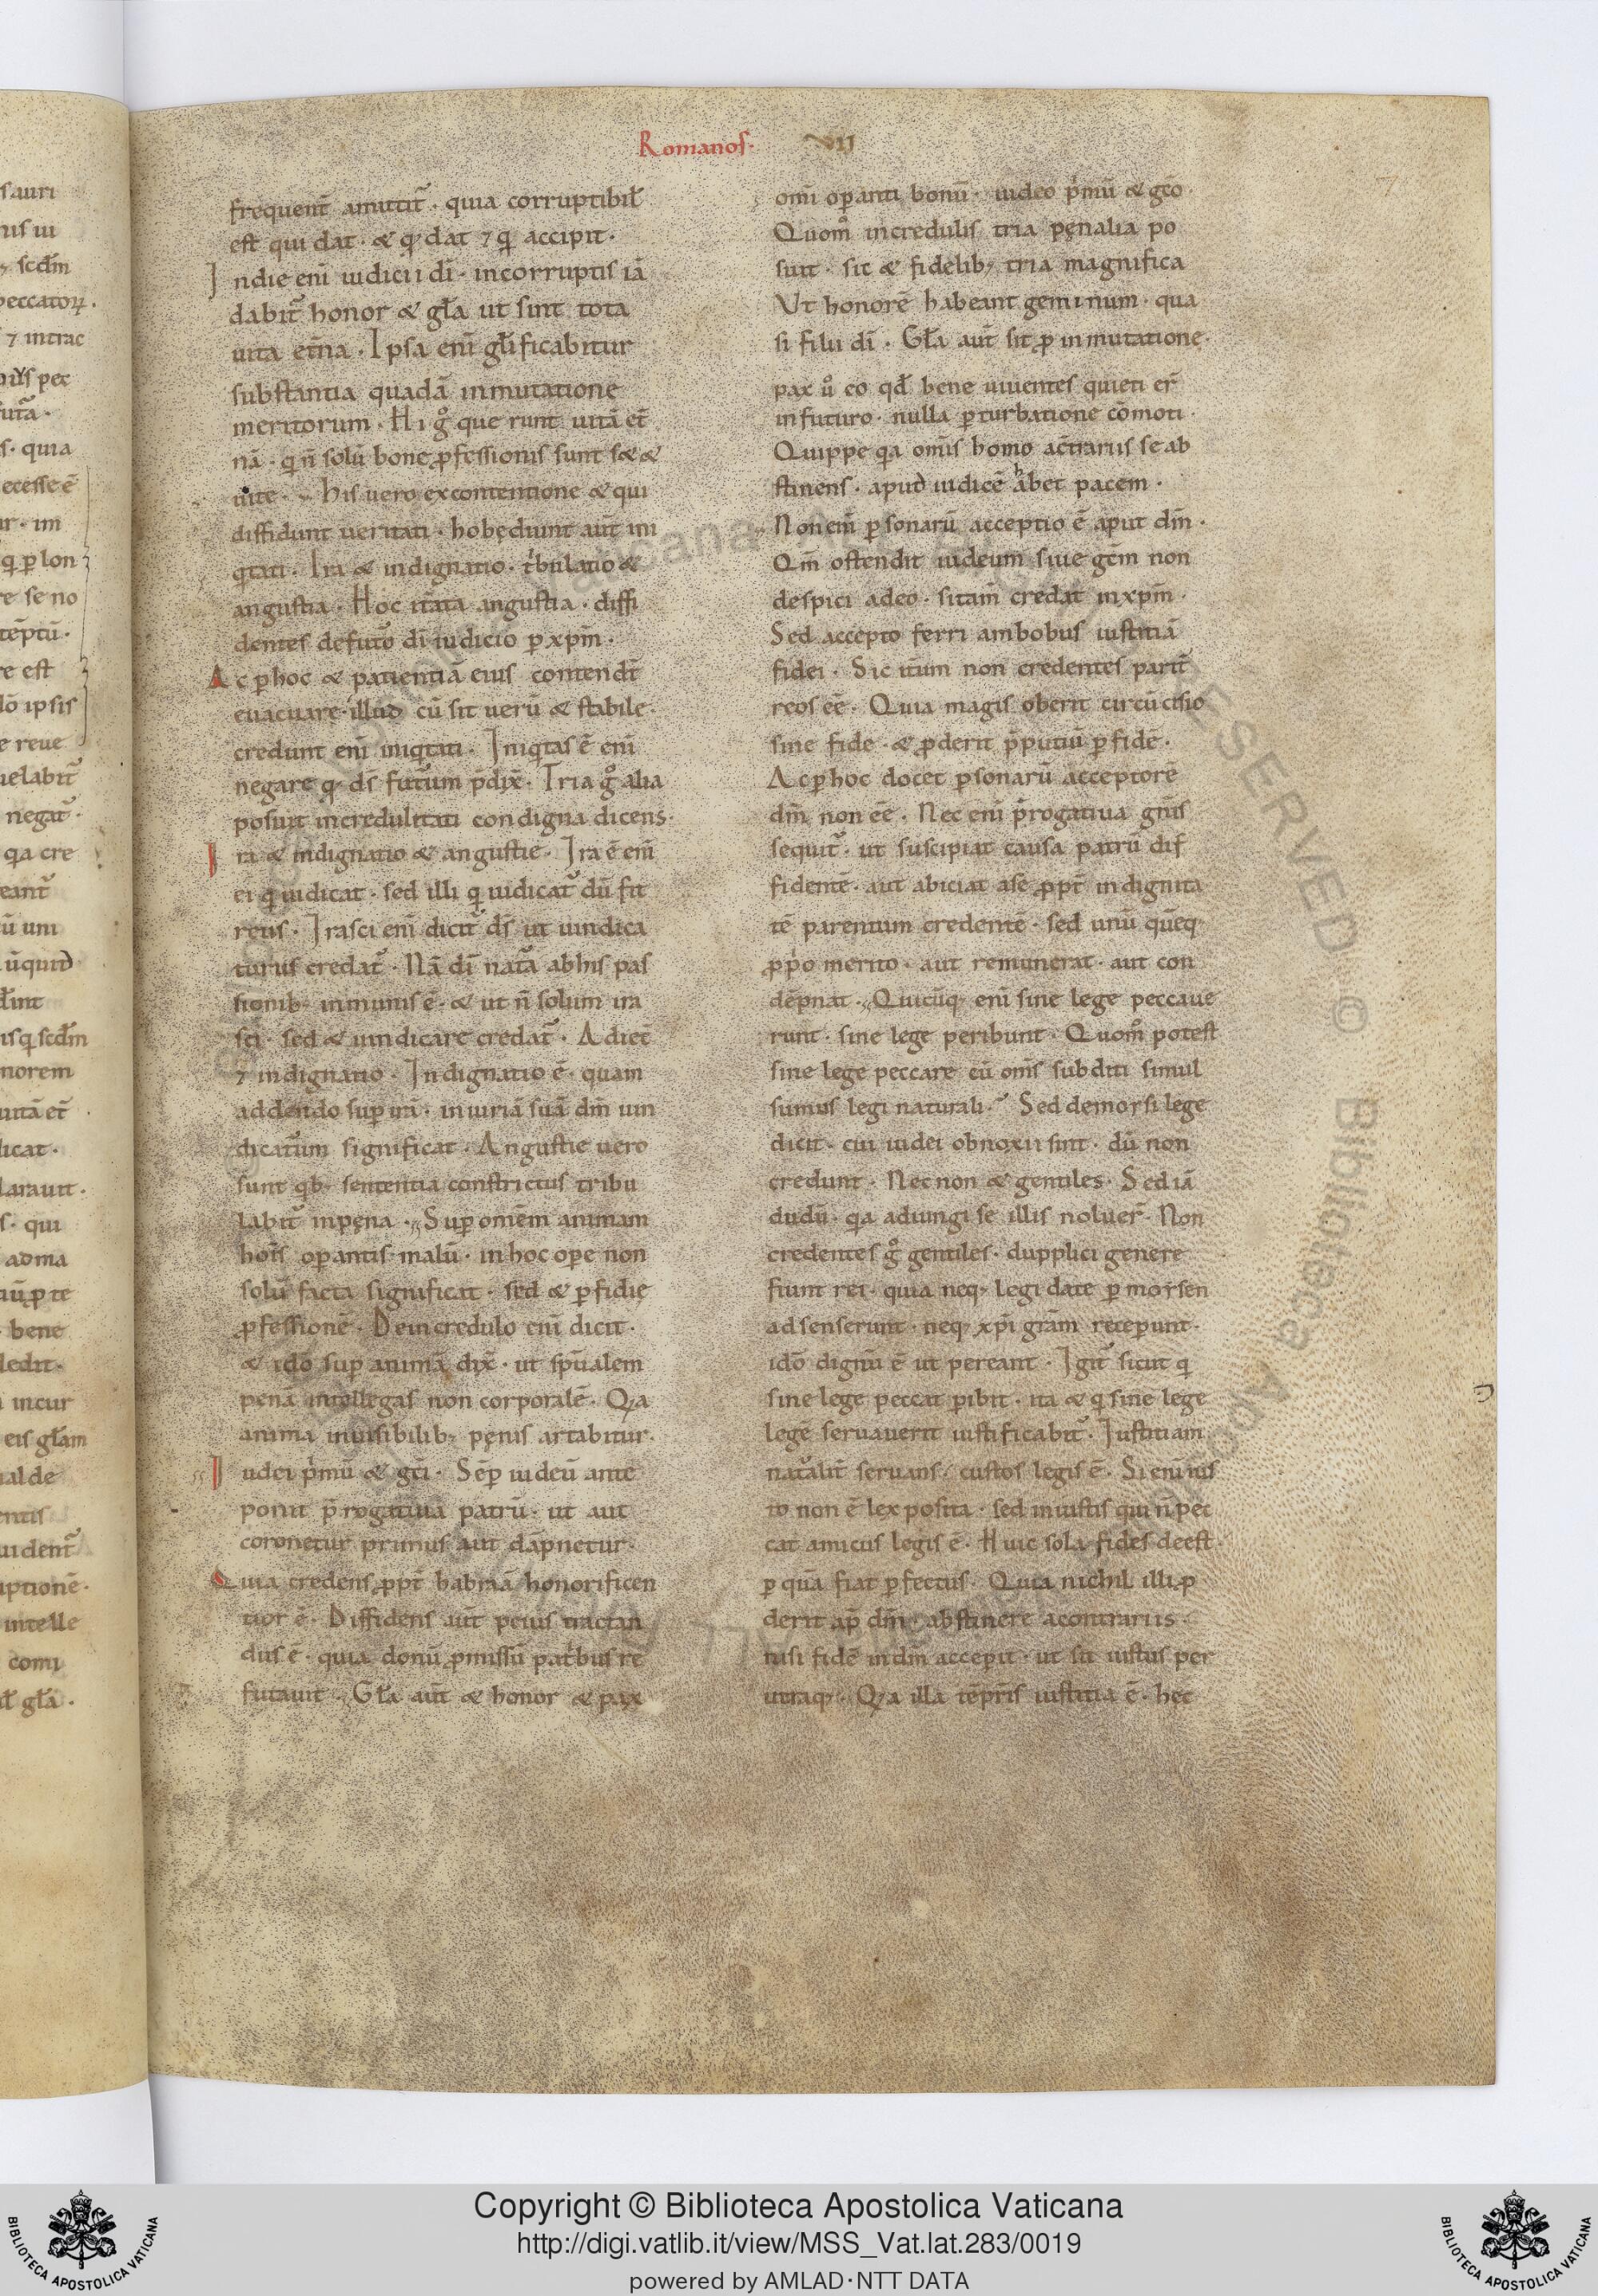 Romanoſ· VII
frequent̄ amittit̄ · quia corruptibił
eſt qui dat · & q̨ dat ⁊ q̄ accipit ·
Indie eni̅ iudicii di̅ · incorruptis iā
dabit̄ honor & gła ut ſint tota
uita et̄na · Ipſa eni̅ głificabitur
ſubſtantia quadā inmutatione
meritorum · Hi gͦ que runt uitā et̄
nā · qi n̄ ſolū bone ꝓfeſſionis ſunt ſ& &
uite · His uero excontentione & qui
diffidunt ueritati · hobęđiunt aut̄ ini
qtati · Ira & indignatio · tⁱbulatio &
anguſtia · Hoc it̄ ata anguſtia · diffi
dentes defuto̅ di̅ iudicio ꝑ xpm̄ ·
Ac ꝑhoc & patientiā eiuſ contendt̄
euacuare · illud cū ſit uerū & ſtabile ·
credunt eni̅ iniqtati · Iniqtaſ ē eni̅
negare q̨ dſ̄ futūrum p̄dix̄ · Tria gͦ alia
poſuit incredulitati condigna dicens ·
Ira & indignatio & anguſtie · Ira ē eni̅
ei q̄ iudicat · ſed illi q̄ iudicat̄ dū fit
reus · Iraſci eni̅ dicit̄ dſ̄ ut uindica
turus credat̄ · Nā di̅ nat̄a abhis paſ
ſionib; inmunis ē · & ut n̄ ſolum ira
ſci · ſed & uindicare credat̄ · Adiec̄
⁊ indignatio · Indignatio ē · quam
addendo ſuꝑ irā · iniuriā ſuā dm̄ uin
dicatum ſignificat · Anguſtie uero
ſunt qb; ſententia conſtrictus tribu
labit̄ inpęna · Suꝑ omēm animam
hoi̅s oꝑantis malū · in hoc oꝑe non
ſolū facta ſignificat · ſed & ꝑfidie
ꝓfeſſionē · Deincredulo eni̅ dicit ·
& ido̅ ſuꝑ animā dix̄ · ut ſpūalem
penā intellegaſ non corporalē · Qa
anima inuiſibilib; pęnis artabitur ·
Iudei pⁱmū & gci̅ · Seꝑ iudeū ante
ponit p̄rogatiua patrū · ut aut
coronetur primus aut dāpnetur ·
Quia credens ꝓpt̄ habraā honorificen
tior ē · Diffidens aut̄ peius tractan
dus ē · quia donū ꝓmiſſū patⁱbus re
futauit · Gła aut̄ & honor & pax
omi̅ oꝑanti bonū · iudeo pⁱmū & gco̅ ·
Quomͦ incredulis tria pęnalia po
ſuit · ſic & fidelib; tria magnifica
Vt honorē habeant geminum · qua
ſi filii di̅ · Gła aut̄ ſit ꝓ inmutatione ·
pax uͦ eo qđ bene uiuentes quieti er̄
infuturo · nulla ꝑturbatione cōmoti ·
Quippe qa omi̅s homo act̄rariis ſe ab
ſtinens · apud iudicē abet pacem ·
Non eni̅ ꝑſonarū acceptio ē aput dm̄ ·
Qm̄ oſtendit iudeum ſiue gc̄m non
deſpici adeo · ſitam̄ credat inxpm̄ ·
Sed accepto ferri ambobus iuſtitiā
fidei · Sic it̄um non credentes parit̄
reos eē · Quia magis oberit circūciſio
ſine fide · & ꝓderit p̄putiū ꝑ fidē ·
Ac ꝑ hoc docet ꝑſonarū acceptorē
dm̄ non eē · Nec eni̅ p̄rogatiua gn̄is
ſequit̄ · ut ſuſcipiat cauſa patrū dif
fidentē · aut abiciat aſe ꝓpt̄ indignita
tē parentum credentē · ſed unū quēq;
ꝓpⁱo merito · aut remunerat · aut con
dēpnat · Quicūq; eni̅ ſine lege peccaue
runt · ſine lege peribunt · Quomͦ poteſt
ſine lege peccare cū omi̅s ſubditi ſimul
ſumus legi naturali · Sed demoyſi lege
dicit · cui iudei obnoxii ſint · dū non
credunt · Necnon & gentiles · Sed iā
dudū · qa adiungi ſe illis noluer̄ · Non
credentes gͦ gentiles · dupplici genere
fiunt rei · quia neq; legi date ꝑ moyſen
adſenſerunt · neq; xpi̅ gr̄am receꝑunt ·
ido̅ dignū ē ut pereant · Igit̄ ſicut q̄
ſine lege peccat ꝑibit · ita & q̄ ſine lege
legē ſeruauerit iuſtificabit̄ · Iuſtitiam
nat̄alit̄ ſeruans · cuſtos legis ē · Si eni̅ iuſ
to non ē lex poſita · ſed iniuſtis qui n̄ pec
cat amicus legis ē · Huic ſola fides deeſt ·
ꝑ quā fiat ꝑfectus · Quia nichil illi ꝓ
derit ap̄ dm̄ · abſtinere acontrariis ·
niſi fidē indm̄ acceꝑit · ut ſit iuſtus per
utraq; · Qa illa tēpr̄is iuſtitia ē · hec
Copyright © Biblioteca Apostolica Vaticana
http://digi.vatlib.it/view/MSS_Vat.lat.283/0019
powered by AMLAD·NTT DATA
BIBLIOTECA APOSTOLICA VATICANA
BIBLIOTECA APOSTOLICA VATICANA